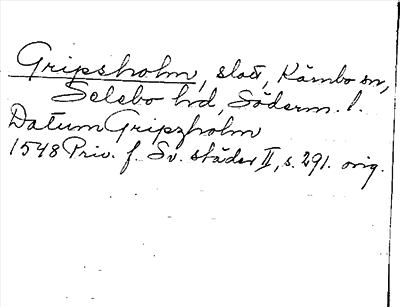 Gripsholm, slott, Kärnbo sn,
Selebo hd, Söderm. l.
Datum Gripzholm
1548 Priv. f. Sv. städer II, s. 291. orig.